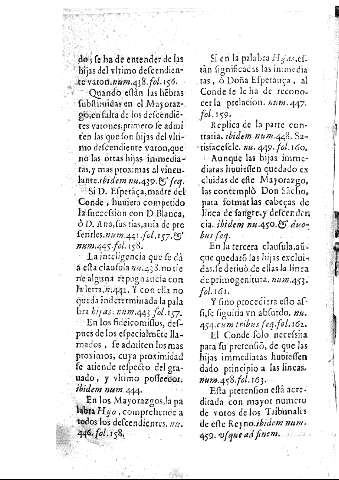 do; se ha de entender de las
hijas del vltimo descendien-
te varon. num. 438. fol. 156.
Quando están las hẽbras
substituidas en el Mayoraz-
go, en falta de los descendiẽ-
tes varones, primero se admi-
ten las que son hijas del vlti-
mo descendiente varon, que
no las otras hijas immedia-
tas, y mas proximas al vincu-
lante. ibidem nu. 439. & seq.
Si D. Esperãça, madre del
Conde, huviera competido
la succession con D. Blanca,
ò D. Ana, sus tias, aũ de pre
sentes. num. 441. fol. 157. &
num. 445. fol. 158.
La inteligencia que se dà
à esta clausula nu. 438. no tie
ne alguna repugnancia con
la letra, n. 441. Y con ella no
queda indeterminada la pala
bra hijas: num. 443 fol. 157.
En los fideicomissos, des-
pues de los especialmẽte lla-
mados, se admiten los mas
proximos, cuya proximidad
se atiende respecto del gra-
uado, y vltimo posseedor.
ibidem num. 444.
En los Mayorazgos, la pa
labra Hijo, comprehende à
todos los descendientes. nu.
446. fol. 158.
Si en la palabra Hijas, es-
tàn significadas las immedia
tas, ò Doña Esperança, al
Conde se le ha de recono-
cer la prelacion. num. 447.
fol. 159.
Replica de la parte con-
traria. ibidem num. 448. Sa-
tisfacesele. nu. 449. fol. 160.
Aunque las hijas imme-
diatas huviessen quedado ex
cluidas de este Mayorazgo,
las contemplò Don Sãcho,
para formar las cabeças de
linea de sangre, y descenden
cia. ibidem nu. 450. & duo-
bus seq.
En la tercera clausula, aũ-
que quedarõ las hijas exclui-
das, se deriuò de ellas la linea
de primogenitura. num. 453.
fol. 161.
Y sino procediera esto as-
si, se siguiria vn absurdo. nu.
454. cum tribus seq. fol. 162.
El Conde solo necessita
para su pretensiõ, de que las
hijas immediatas huviessen
dado principio a las lineas.
num. 458. fol. 163.
Esta pretension està acre-
ditada con mayor numero
de votos de los Tribunales
de este Reyno. ibidem num.
459. vsque ad finem.